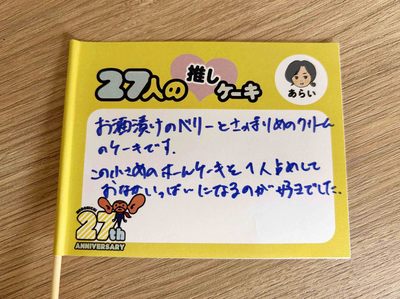 27人の推しケーキ
あらい
お酒漬けのベリーとさっぱりめのクリーム
のケーキです。
この小さめのホールケーキを1人占めして
おなかいっぱいになるのが好きでした。
27th
ANNIVERSARY